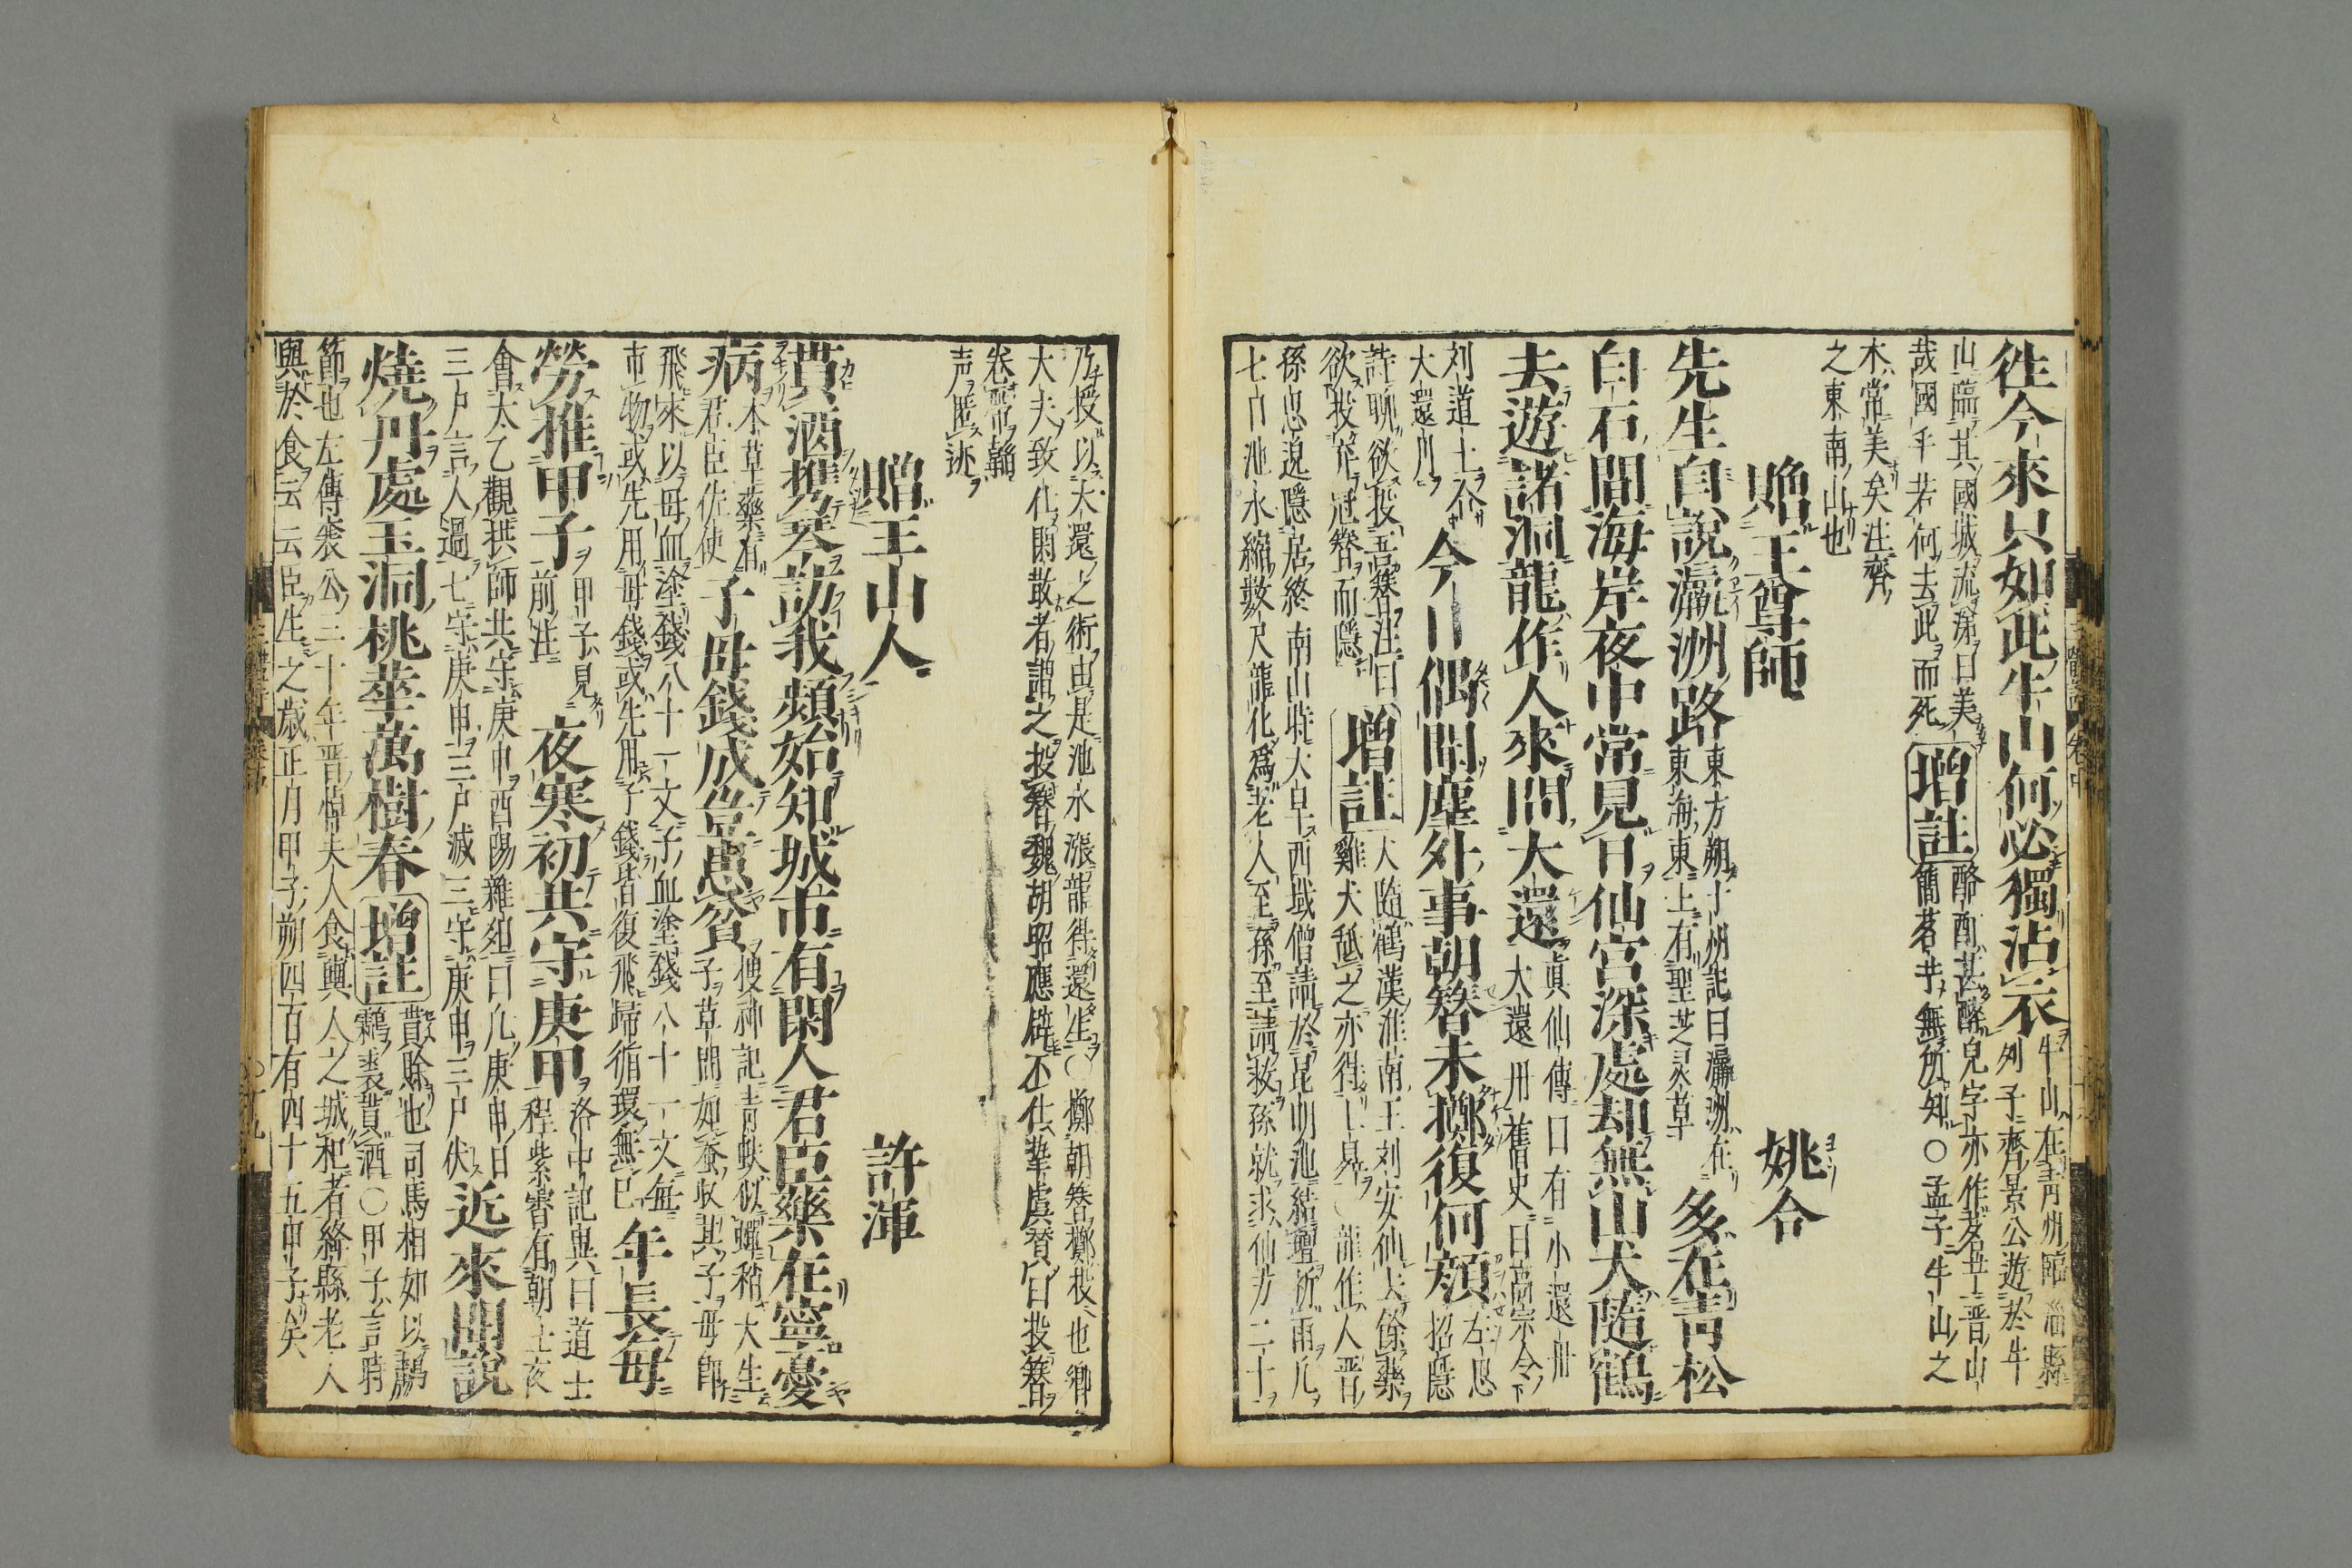 徃今來只如此牛山何必獨沾衣牛山在青州臨淄縣
列子齊景公遊於牛
山臨其國城流涕曰美
哉國乎若何去此而死增註酩酊甚醉皃字亦作茗艼晋山
簡茗艼無所知○孟子牛山之
木常美矣注齊
之東南山也
贈王尊師
姚合
先生自說瀛洲路東方朔十州記曰瀛洲在
東海東上有聖芝灵草多在青松
白石間海岸夜中常見日仙宮深處却無山犬隨鶴
去遊諸洞龍作人來問大還眞仙傳曰有小還丹
大還丹舊史曰高宗令
刘道士合
大還丹今日偶聞塵外事朝簪未擲復何顔左思
招隱
詩聊欲投吾簪注曰
欲投弃冠簪而隱增註犬隨鶴漢淮南王刘安仙去餘藥
雞犬舐之亦得上昇○龍作人晋
孫思邈隱居終南山時大旱西域僧請於昆明池結壇祈雨凡
七日池水縮數尺龍化爲老人至孫至請救孫就求仙方三十
乃授以大還之術由是池水漲龍得還生○擲朝簪擲投也卿
大夫致仕閑散者謂之投簪魏胡昭應辟不仕摯虞贊曰投簪
卷帶韜
声匿迹
贈王山人
許渾
貰酒携琴訪我頻始知城市有閑人君臣藥在寧憂
病本草藥有
君臣佐使子母錢成豈患貧搜神記青蚨似蟬稍大生
子草間如蚕収其子母卽
飛來以母血塗錢八十一文子血塗錢八十一文每
市物或先用母錢或先用子錢皆復飛歸循環無已年長每
勞推甲子甲子見
前注夜寒初共守庚申洛中記異曰道士
程紫霄有朝士夜
會太乙觀拱師共守庚申酉陽雜爼曰凡庚申日
三尸言人過七守庚申三尸滅三守庚申三尸伏近來聞說
燒丹處玉洞桃華萬樹春增註貰賖也司馬相如以鷫
鸘裘貰酒○甲子言時
節也左傳㐮公三十年晋悼夫人食輿人之城杞者絳縣老人
與於食云云臣生之歳正月甲子朔四百有四十五甲子矣